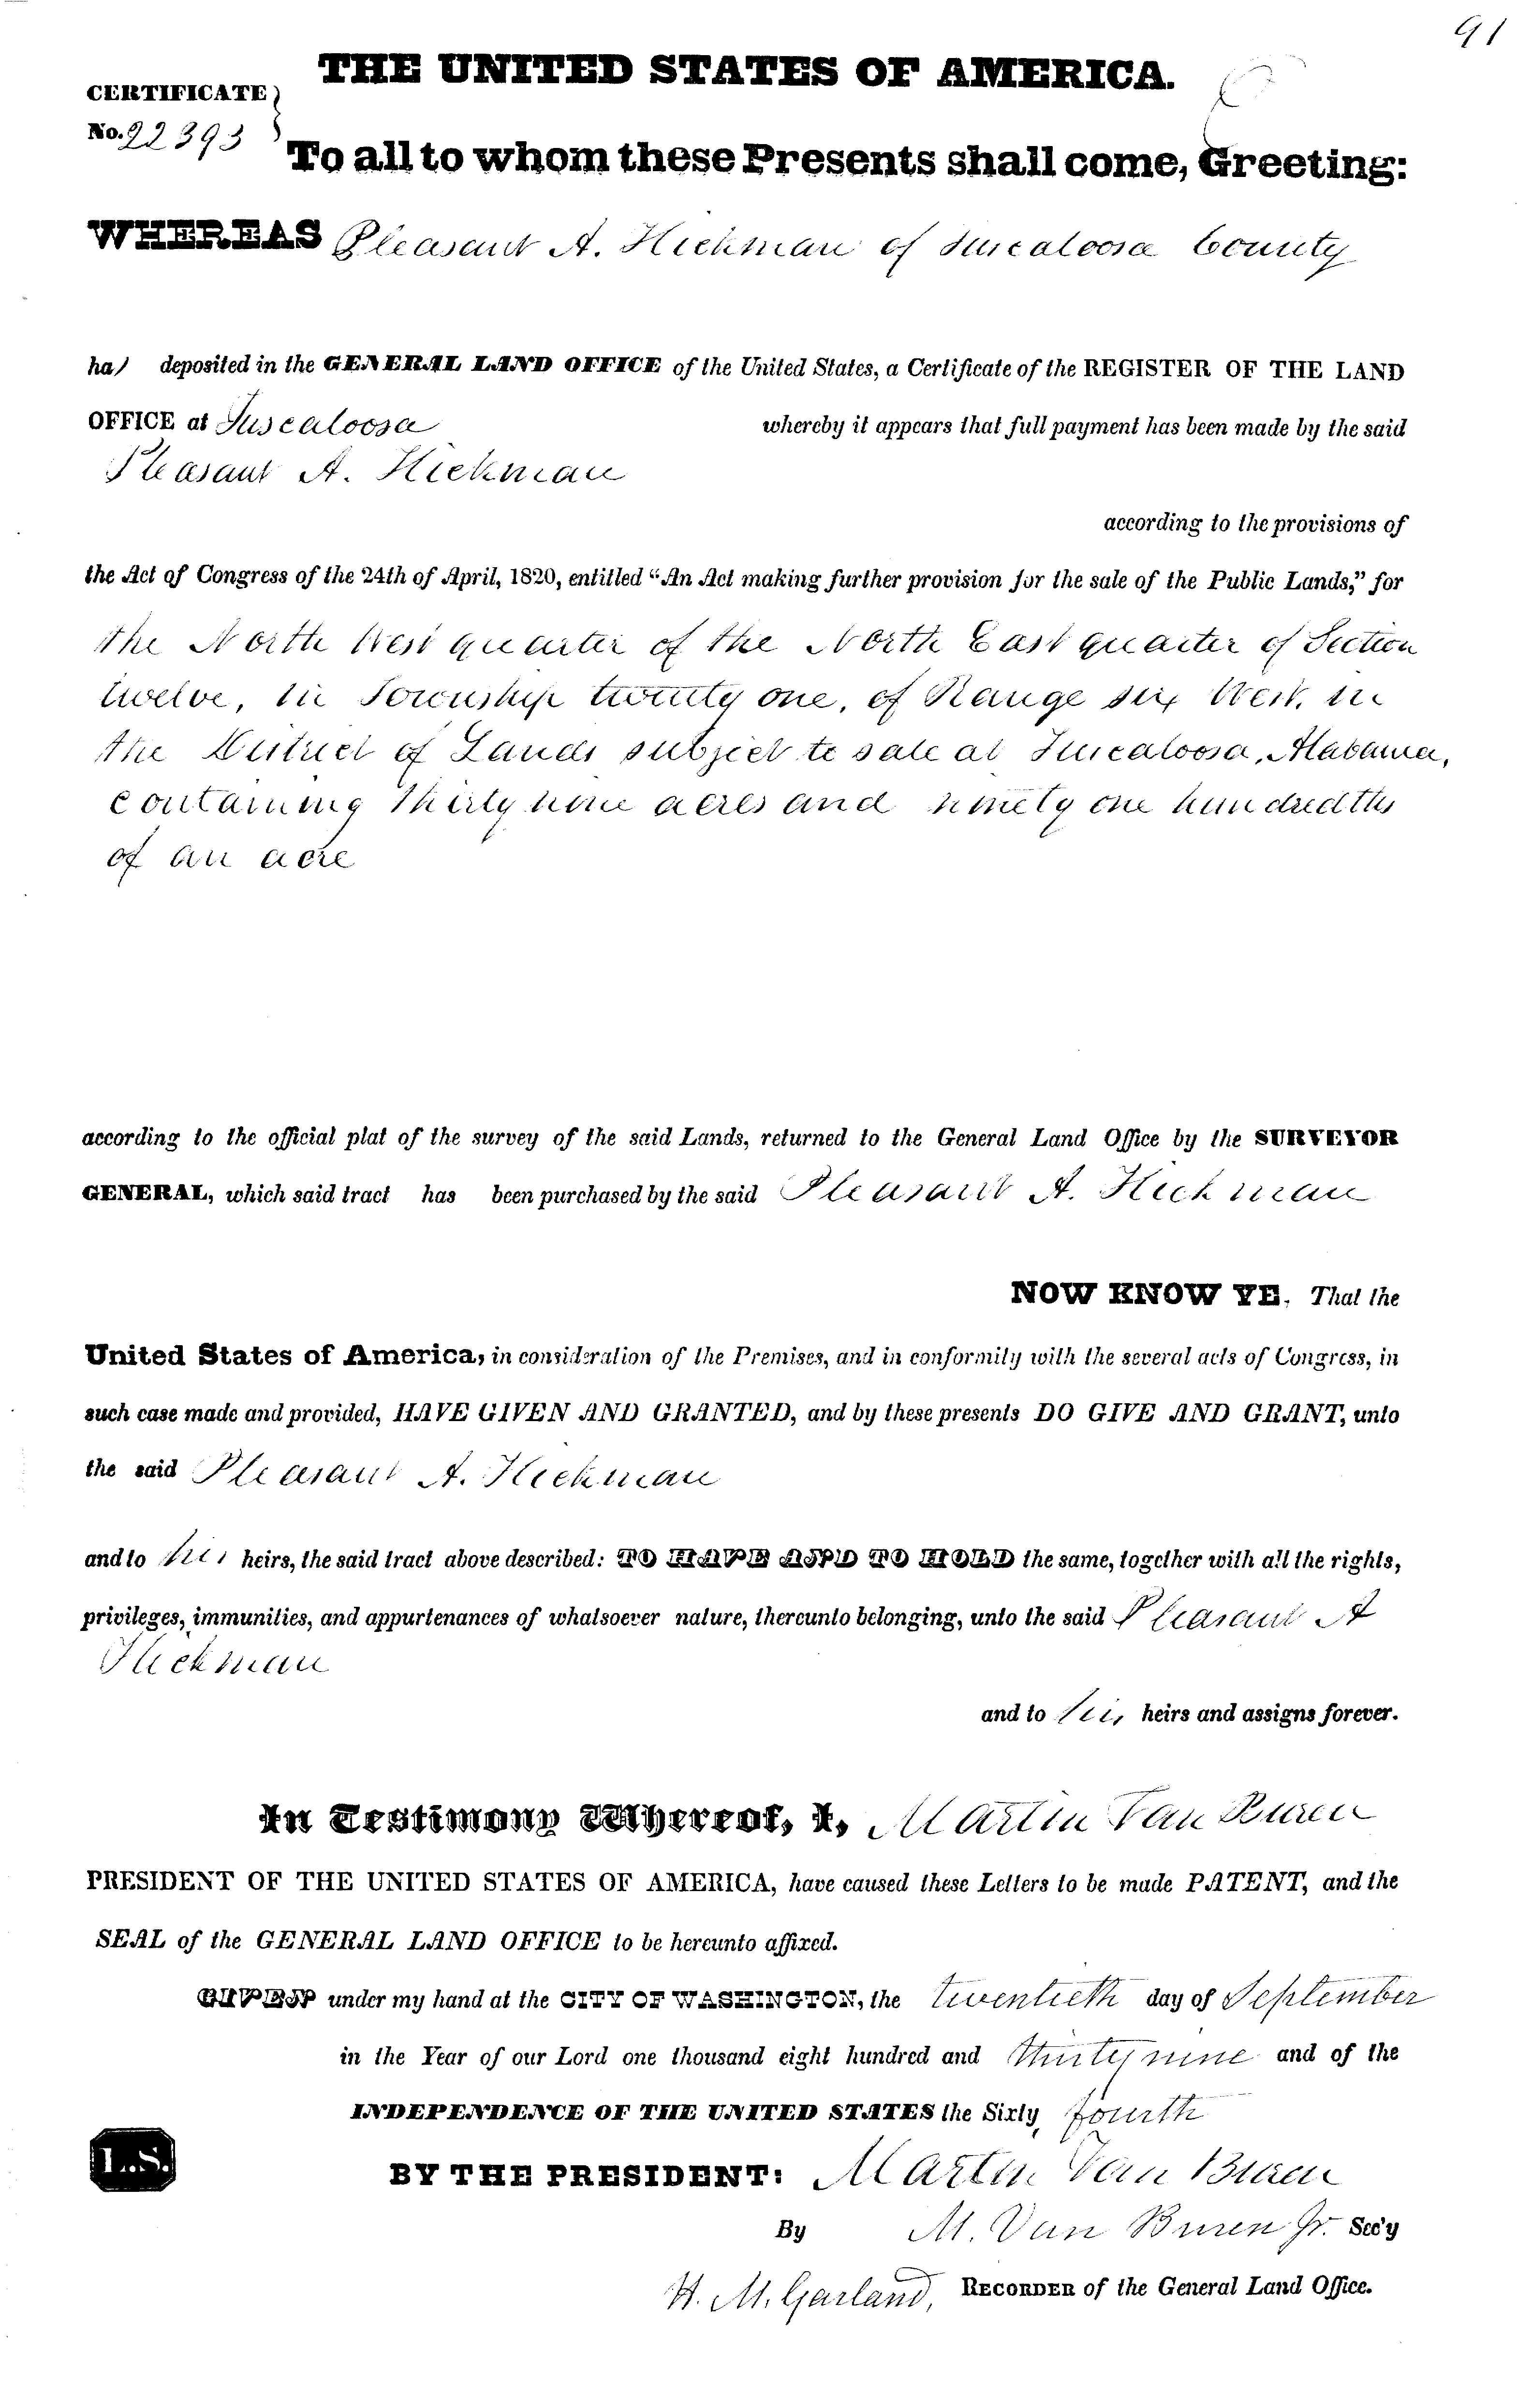 91
THE UNITED STATES OF AMERICA.
CERTIFICATE
No. 22393
To all to whom these Presents shall come, Greeting:
WHEREAS Pleasant A. Hickman of Tuscaloosa County
has deposited in the GENERAL LAND OFFICE of the United States, a Certificate of the REGISTER OF THE LAND
OFFICE at Tuscaloosa whereby it appears that full payment has been made by the said
Pleasant A. Hickman
according to the provisions of
the Act of Congress of the 24th of April, 1820, entitled “An Act making further provision for the sale of the Public Lands,” for
the North West quarter of the North East quarter of Section
twelve, in Township twenty one, of Range six West, in
the District of Lands subject to sale at Tuscaloosa, Alabama,
containing thirty nine acres and ninety one hundredths
of an acre
according to the official plat of the survey of the said Lands, returned to the General Land Office by the SURVEYOR
GENERAL, which said tract has been purchased by the said Pleasant A. Hickman
NOW KNOW YE, That the
United States of America, in consideration of the Premises, and in conformity with the several acts of Congress, in
such case made and provided, HAVE GIVEN AND GRANTED, and by these presents DO GIVE AND GRANT, unto
the said Pleasant A. Hickman
and to his heirs, the said tract above described: TO HAVE AND TO HOLD the same, together with all the rights,
privileges, immunities, and appurtenances of whatsoever nature, thereunto belonging, unto the said Pleasant A
Hickman
and to his heirs and assigns forever.
In Testimony Whereof, I, Martin Van Buren
PRESIDENT OF THE UNITED STATES OF AMERICA, have caused these Letters to be made PATENT, and the
SEAL of the GENERAL LAND OFFICE to be hereunto affixed.
GIVEN under my hand at the CITY OF WASHINGTON, the twentieth day of September
in the Year of our Lord one thousand eight hundred and thirty nine and of the
INDEPENDENCE OF THE UNITED STATES the Sixty fourth
L.S.
BY THE PRESIDENT: Martin Van Buren
By M. Van Buren Jr. Sec'y
H. M. Garland, RECORDER of the General Land Office.